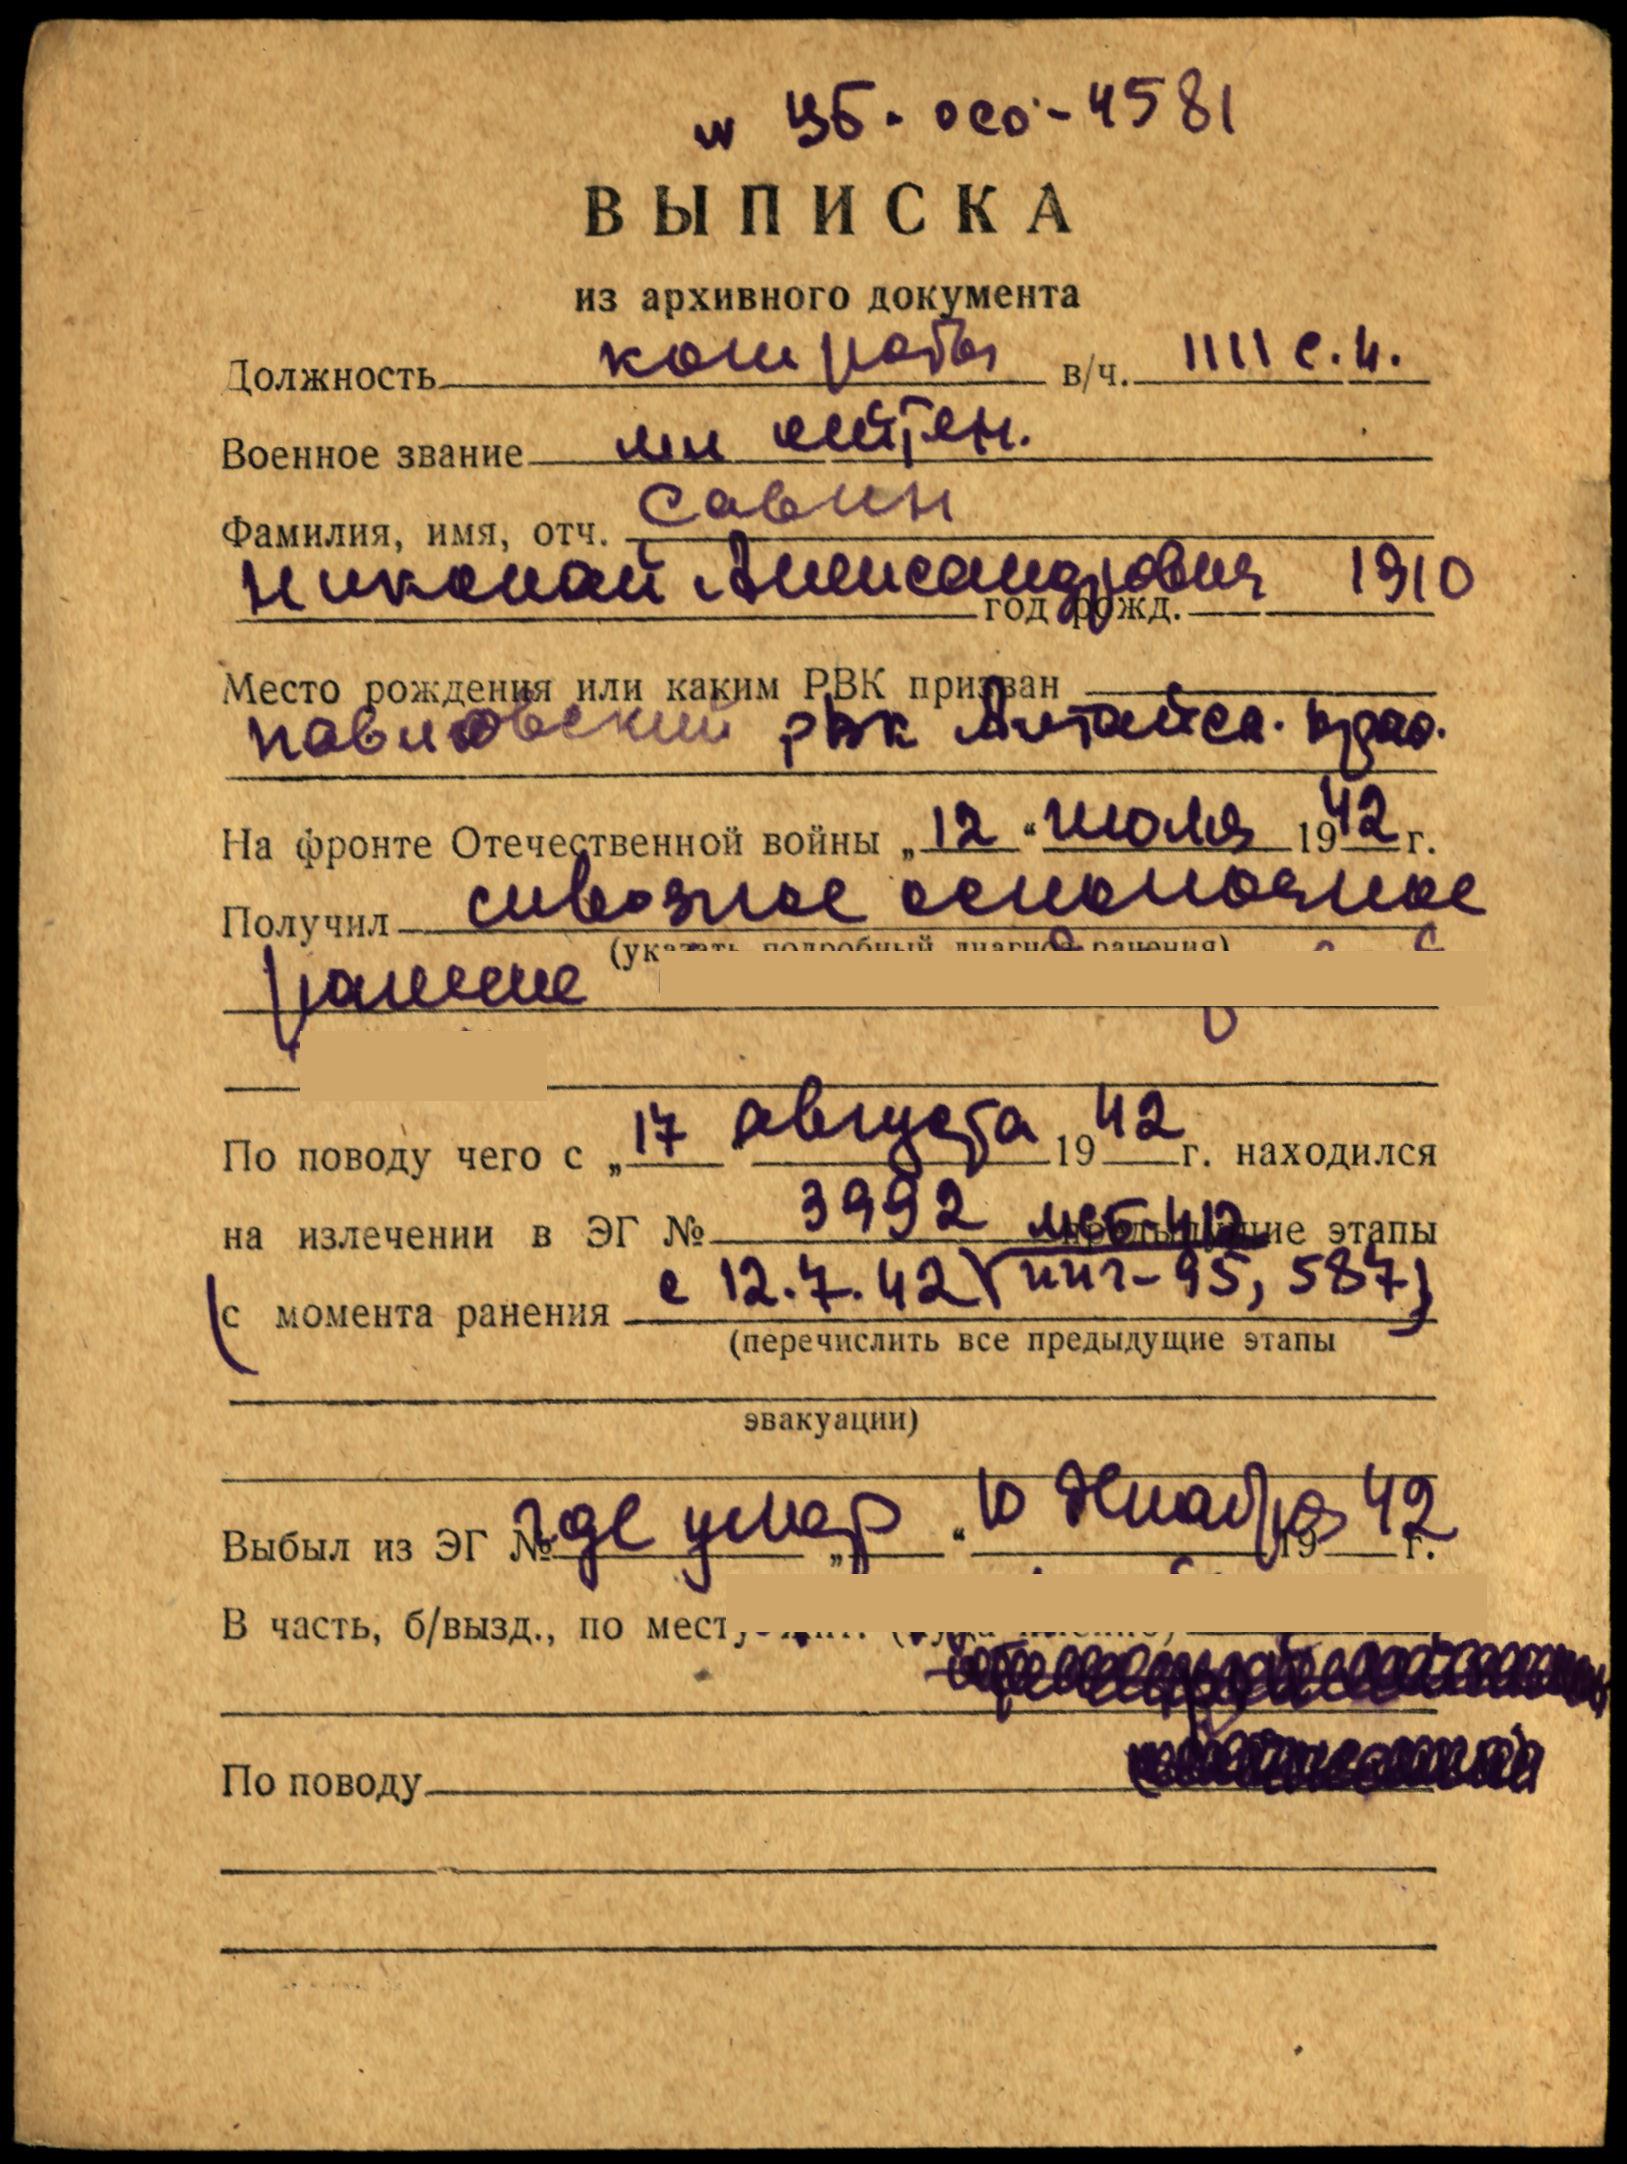 № ЦБ-осо-4581
ВЫПИСКА
из архивного документа
Должность ком роты в/ч. 1111 с.п.
Военное звание мл лейтен.
Фамилия, имя, отч. Савин
Николай Александрович год рожд. 1910
Место рождения или каким РВК призван
Павловский РВК Алтайск. края.
На фронте Отечественной войны „12“ июля 1942 г.
Получил сквозное осколочное
(указать подробный диагноз ранения)
ранение
По поводу чего с „17“ августа 1942 г. находился
на излечении в ЭГ № 3992 предыдущие этапы
с момента ранения с 12.7.42 ( ппг-95, 587)
(перечислить все предыдущие этапы
эвакуации)
Выбыл из ЭГ № где умер „10“ декабря 1942 г.
В часть, б/вызд., по месту жит. (куда именно)
По поводу